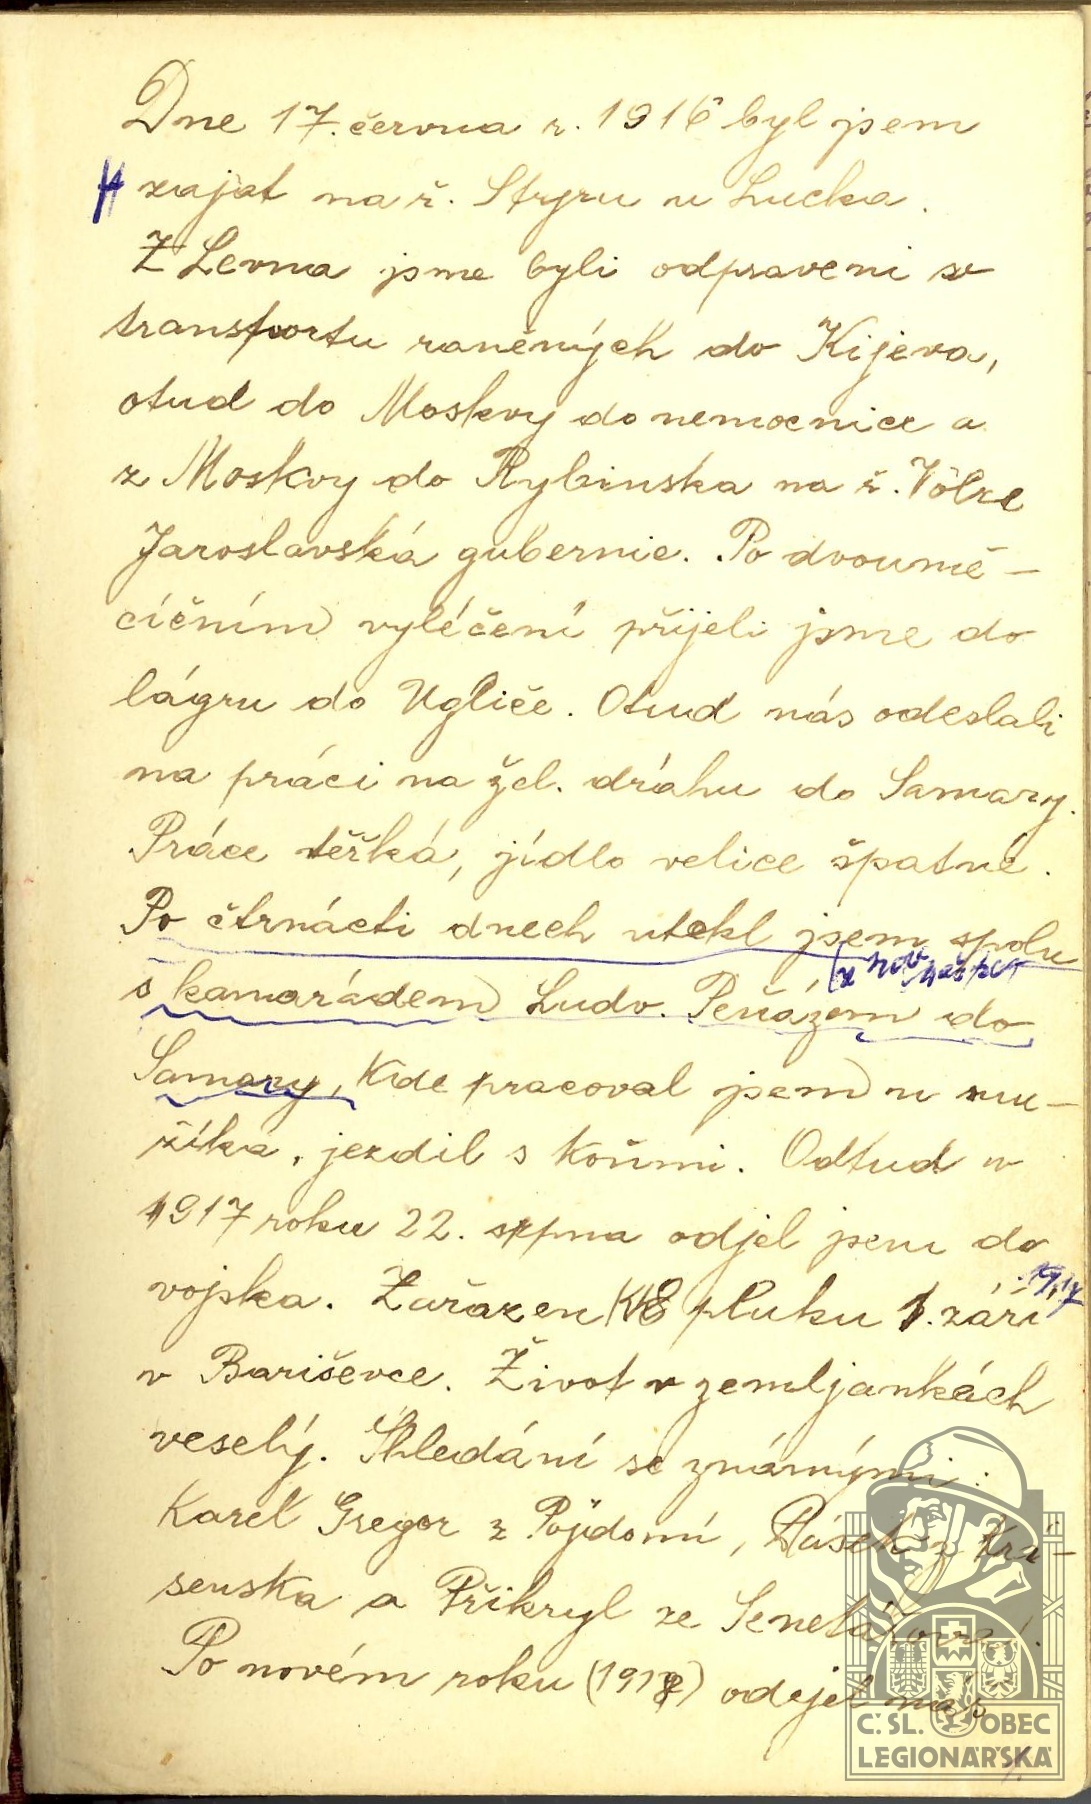 Dne 17. června r. 1916 byl jsem
zajat na ř. Stryru u Lucka.
Z Levna jsme byli odpraveni v
transportu raněných do Kijeva,
otud do Moskvy do nemocnice a
z Moskvy do Rybinska na ř. Volze
Jaroslavská gubernie. Po dvoumě-
cíčním vyléčení přijeli jsme do
lágru do Ugliče. Otud nás odeslali
na práci na žel. dráhu do Samary.
Práce těžká, jídlo velice špatné.
Po čtrnácti dnech utekl jsem spolu
s kamarádem Ludv. Peňázem do
Samary, kde pracoval jsem u mu-
žíka, jezdil s koňmi. Odtud v
1917 roku 22. srpna odjel jsem do
1917
vojska. Zařazen pluku 1. září
v Bariševce. Život v zemljankách
veselý. Shledání se známými:
Karel Gregor z Pojdomí, z Kra-
senska a Přikryl ze
Po novém roku (1918) odejel
Č. SL. OBEC
LEGIONÁŘSKÁ